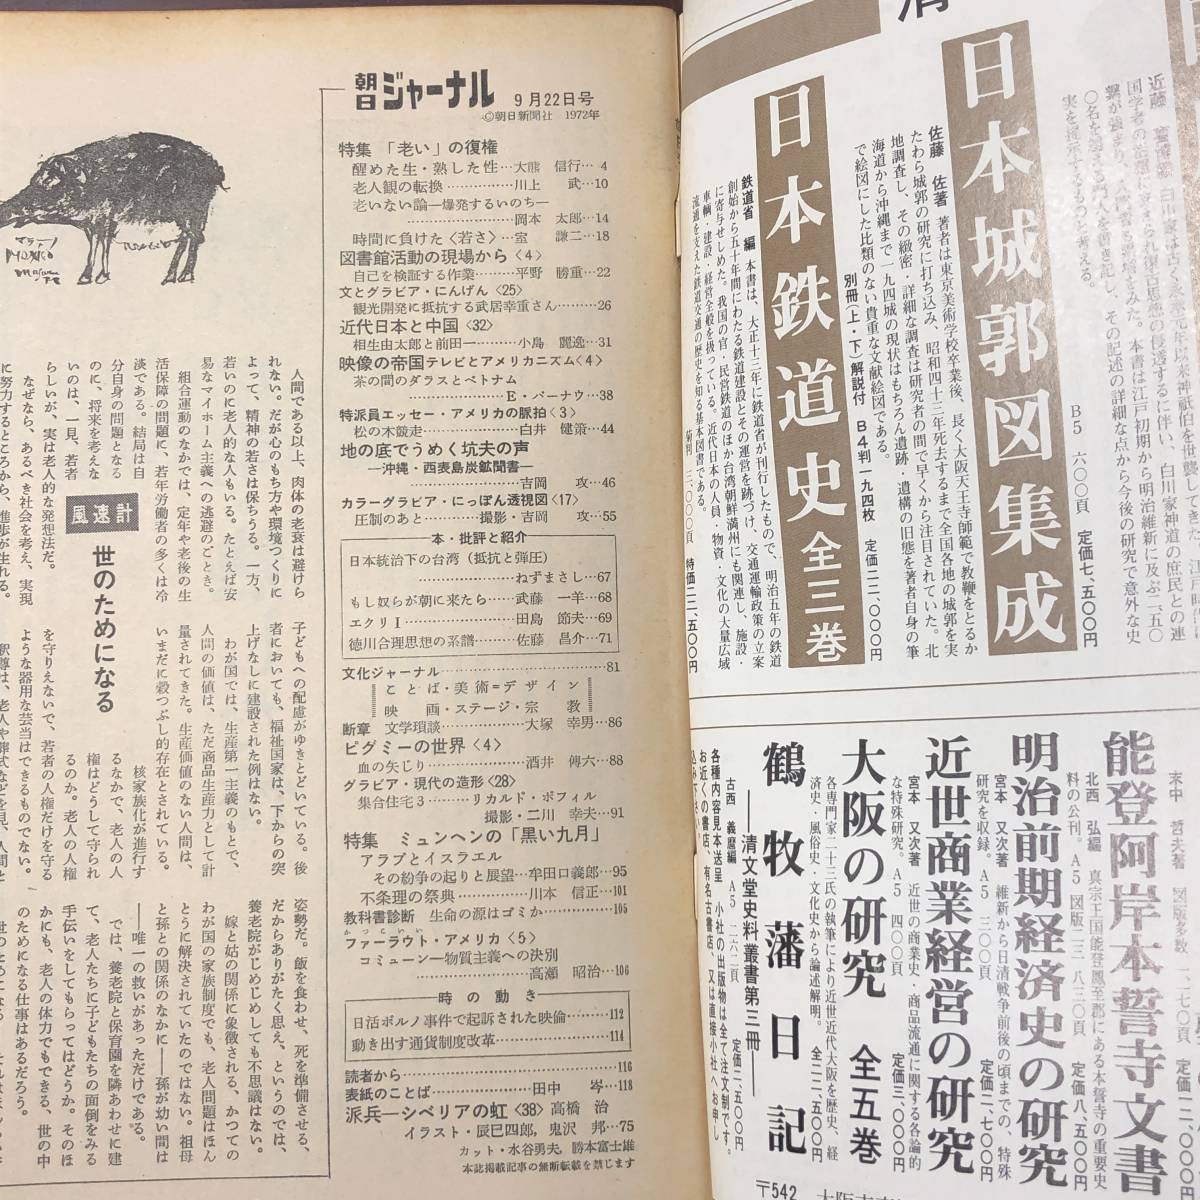 朝日ジャーナル 9月22日号
©朝日新聞社 1972年
特集 「老い」の復権
醒めた生・熟した性…大熊 信行…4
老人観の転換………川上 武…10
老いない論―爆発するいのち―
岡本 太郎…14
時間に負けた〈若さ〉…室 謙二…18
図書館活動の現場から〈4〉
自己を検証する作業………平野 勝重…22
文とグラビア・にんげん〈25〉
観光開発に抵抗する武居幸重さん………26
近代日本と中国〈32〉
相生由太郎と前田一………小島 麗逸…31
映像の帝国 テレビとアメリカニズム〈4〉
茶の間のダラスとベトナム
E・バーナウ…38
特派員エッセー・アメリカの脈拍〈3〉
松の木競走………白井 健策…44
地の底でうめく坑夫の声
―沖縄・西表島炭鉱聞書―
吉岡 攻…46
カラーグラビア・にっぽん透視図〈17〉
圧制のあと………撮影・吉岡 攻…55
本・批評と紹介
日本統治下の台湾（抵抗と弾圧）
ねずまさし…67
もし奴らが朝に来たら……武藤 一羊…68
エクリⅠ………田島 節夫…69
徳川合理思想の系譜………佐藤 昌介…71
文化ジャーナル………81
ことば・美術＝デザイン
映画・ステージ・宗教
断章 文学瑣談………大塚 幸男…86
ピグミーの世界〈4〉
血の矢じり………酒井 傅六…88
グラビア・現代の造形〈28〉
集合住宅3………リカルド・ボフィル
撮影・二川 幸夫…91
特集 ミュンヘンの「黒い九月」
アラブとイスラエル
その紛争の起りと展望…牟田口義郎…95
不条理の祭典………川本 信正…101
教科書診断 生命の源はゴミか………105
かっこいい
ファーラウト・アメリカ〈5〉
コミューン―物質主義への決別
高瀬 昭治…106
時の動き
日活ポルノ事件で起訴された映倫………112
動き出す通貨制度改革………114
読者から………116
表紙のことば………田中 岑…118
派兵―シベリアの虹〈38〉高橋 治
イラスト・辰巳四郎，鬼沢 邦…75
カット・水谷勇夫，勝本富士雄
本誌掲載記事の無断転載を禁じます
風速計
世のためになる
人間である以上、肉体の老衰は避けら
れない。だが心のもち方や環境づくりに
よって、精神の若さは保ちうる。一方、
若いのに老人的な人もいる。たとえば安
易なマイホーム主義への逃避のごとき。
組合運動のなかでは、定年や老後の生
活保障の問題に、若年労働者の多くは冷
淡である。結局は自
分自身の問題となる
のに、将来を考えな
いのは、一見、若者
らしいが、実は老人的な発想法だ。
なぜなら、あるべき社会を考え、実現
に努力するところから、進歩が生れる。
子どもへの配慮がゆきとどいている。後
者においても、福祉国家は、下からの突
上げなしに建設された例はない。
わが国では、生産第一主義のもとで、
人間の価値は、ただ商品生産力として計
量されてきた。生産価値のない人間は、
いまだに穀つぶし的存在とされている。
核家族化が進行す
るなかで、老人の人
権はどうして守られ
るのか。老人の人権
を守りえないで、若者の人権だけを守る
ような器用な芸当はできるものでない。
姿勢だ。飯を食わせ、死を準備させる。
だからありがたく思え、というのでは、
養老院がじめじめしても不思議はない。
嫁と姑の関係に象徴される、かつての
わが国の家族制度でも、老人問題はほん
とうに解決されていたのではない。祖母
と孫との関係のなかに――孫が幼い間は
――唯一の救いがあっただけである。
では、養老院と保育園を隣あわせに建
て、老人たちに子どもたちの面倒をみる
手伝いをしてもらってはどうか。そのほ
かにも、老人の体力でもできる、世の中
のためになる仕事はあるだろう。
日本城郭図集成
佐藤 佐著 著者は東京美術学校卒業後、長く大阪天王寺師範で教鞭をとるか
たわら城郭の研究に打ち込み、昭和四十三年死去するまで全国各地の城郭を実
地調査し、その緻密・詳細な調査は研究者の間で早くから注目されていた。北
海道から沖縄まで一九四城の現状はもちろん遺跡・遺構の旧態を著者自身の筆
で絵図にした比類のない貴重な文献絵図である。
別冊（上・下）解説付 B4判 一九四枚 定価二二、〇〇〇円
B5 六〇〇頁 定価七、五〇〇円
日本鉄道史 全三巻
鉄道省 編 本書は、大正十二年に鉄道省が刊行したもので、明治五年の鉄道
創始から五十年間にわたる鉄道建設とその運営を跡づけ、交通運輸政策の立案
に寄与せしめた。我国の官・民営鉄道のほか台湾朝鮮満州にも関連し、施設・
車輌・建設・経営全般を扱っている。近代日本の人員・物資・文化の大量広域
流通を支えた鉄道交通の歴史を知る基本図書である。
特価二二、五〇〇円
能登阿岸本誓寺文書
北西 弘編 真宗王国能登鳳至郡にある本誓寺の重要史
料の公刊。A5 図版一三 八三〇頁 定価八、五〇〇円
明治前期経済史の研究
宮本 又次著 維新から日清戦争前後の頃までの、特殊
研究を収録。A5 三〇〇頁 定価二、七〇〇円
近世商業経営の研究
宮本 又次著 近世の商業史・商品流通に関する各論的
な特殊研究。A5 四〇〇頁 定価三、〇〇〇円
大阪の研究 全五巻
各専門家二十三氏の執筆により近世近代大阪を歴史、経
済史・風俗史・文化史から論述解明。全二二、五〇〇円
鶴牧藩日記
―清文堂史料叢書第三冊―
古西 義麿編 A5 二六二頁 定価二、五〇〇円
各種内容見本送呈 小社の出版物は全て注文制です。
お近くの書店、有名古書店、又は直接小社へお申し
込み下さい。
〒542